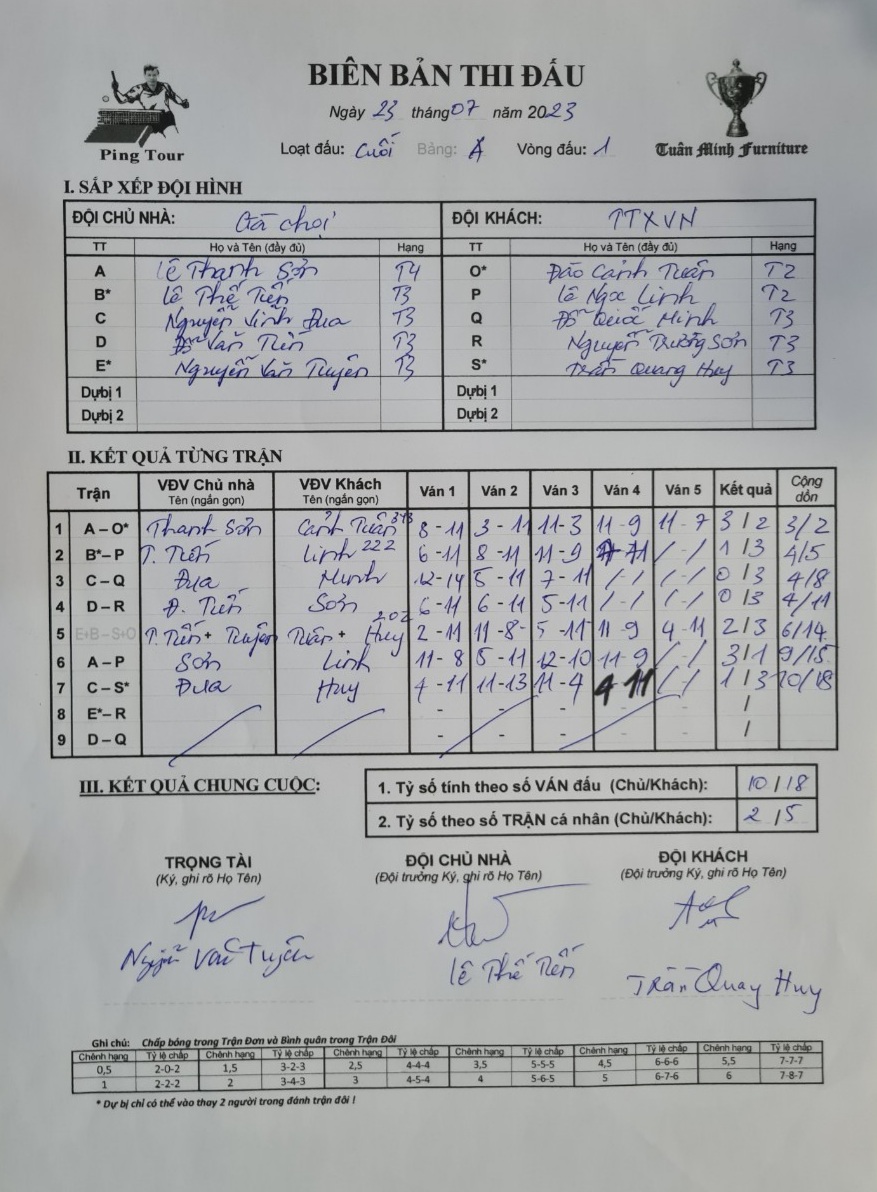 BIÊN BẢN THI ĐẤU
Ngày 23 tháng 07 năm 2023
Ping Tour
Loạt đấu: Cuối Bảng: A Vòng đấu: 1
Tuân Minh Furniture
I. SẮP XẾP ĐỘI HÌNH
ĐỘI CHỦ NHÀ: Gà chọi ĐỘI KHÁCH: TTXVN
TT Họ và Tên (đầy đủ) Hạng TT Họ và Tên (đầy đủ) Hạng
A Lê Thanh Sơn T4 O* Đào Cảnh Tuấn T2
B* Lê Thế Tiến T3 P Lê Ngọc Linh T2
C Nguyễn Vinh Đua T3 Q Đỗ Quốc Minh T3
D Đỗ Văn Tiến T3 R Nguyễn Trường Sơn T3
E* Nguyễn Văn Tuyên T3 S* Trần Quang Huy T3
Dự bị 1 Dự bị 1
Dự bị 2 Dự bị 2
II. KẾT QUẢ TỪNG TRẬN
Trận VĐV Chủ nhà Tên (ngắn gọn) VĐV Khách Tên (ngắn gọn) Ván 1 Ván 2 Ván 3 Ván 4 Ván 5 Kết quả Cộng dồn
1 A – O* Thanh Sơn Cảnh Tuấn 343 8 - 11 3 - 11 11 - 3 11 - 9 11 - 7 3 / 2 3/2
2 B* – P T. Tiến Linh 222 6 - 11 8 - 11 11 - 9 7-11 /-/ 1 / 3 4/5
3 C – Q Đua Minh 12 - 14 5 - 11 7 - 11 /-/ /-/ 0 / 3 4/8
4 D – R Đ. Tiến Sơn 6 - 11 6 - 11 5 - 11 /-/ /-/ 0 / 3 4/11
5 E+B – S+O T. Tiến + Tuyên Tuấn + Huy 202 2 - 11 11 - 8 5 - 11 11 - 9 4 - 11 2 / 3 6/14
6 A – P Sơn Linh 11 - 8 5 - 11 12 - 10 11 - 9 /-/ 3 / 1 9/15
7 C – S* Đua Huy 4 - 11 11 - 13 11 - 4 4 11 /-/ 1 / 3 10/18
8 E* – R - - - - - /
9 D – Q - - - - - /
III. KẾT QUẢ CHUNG CUỘC:
1. Tỷ số tính theo số VÁN đấu (Chủ/Khách): 10 / 18
2. Tỷ số theo số TRẬN cá nhân (Chủ/Khách): 2 / 5
TRỌNG TÀI ĐỘI CHỦ NHÀ ĐỘI KHÁCH
(Ký, ghi rõ Họ Tên) (Đội trưởng Ký, ghi rõ Họ Tên) (Đội trưởng Ký, ghi rõ Họ Tên)
Nguyễn Văn Tuyên Lê Thế Tiến Trần Quang Huy
Ghi chú: Chấp bóng trong Trận Đơn và Bình quân trong Trận Đôi
Chênh hạng Tỷ lệ chấp Chênh hạng Tỷ lệ chấp Chênh hạng Tỷ lệ chấp Chênh hạng Tỷ lệ chấp Chênh hạng Tỷ lệ chấp Chênh hạng Tỷ lệ chấp
0,5 2-0-2 1,5 3-2-3 2,5 4-4-4 3,5 5-5-5 4,5 6-6-6 5,5 7-7-7
1 2-2-2 2 3-4-3 3 4-5-4 4 5-6-5 5 6-7-6 6 7-8-7
* Dự bị chỉ có thể vào thay 2 người trong đánh trận đôi !